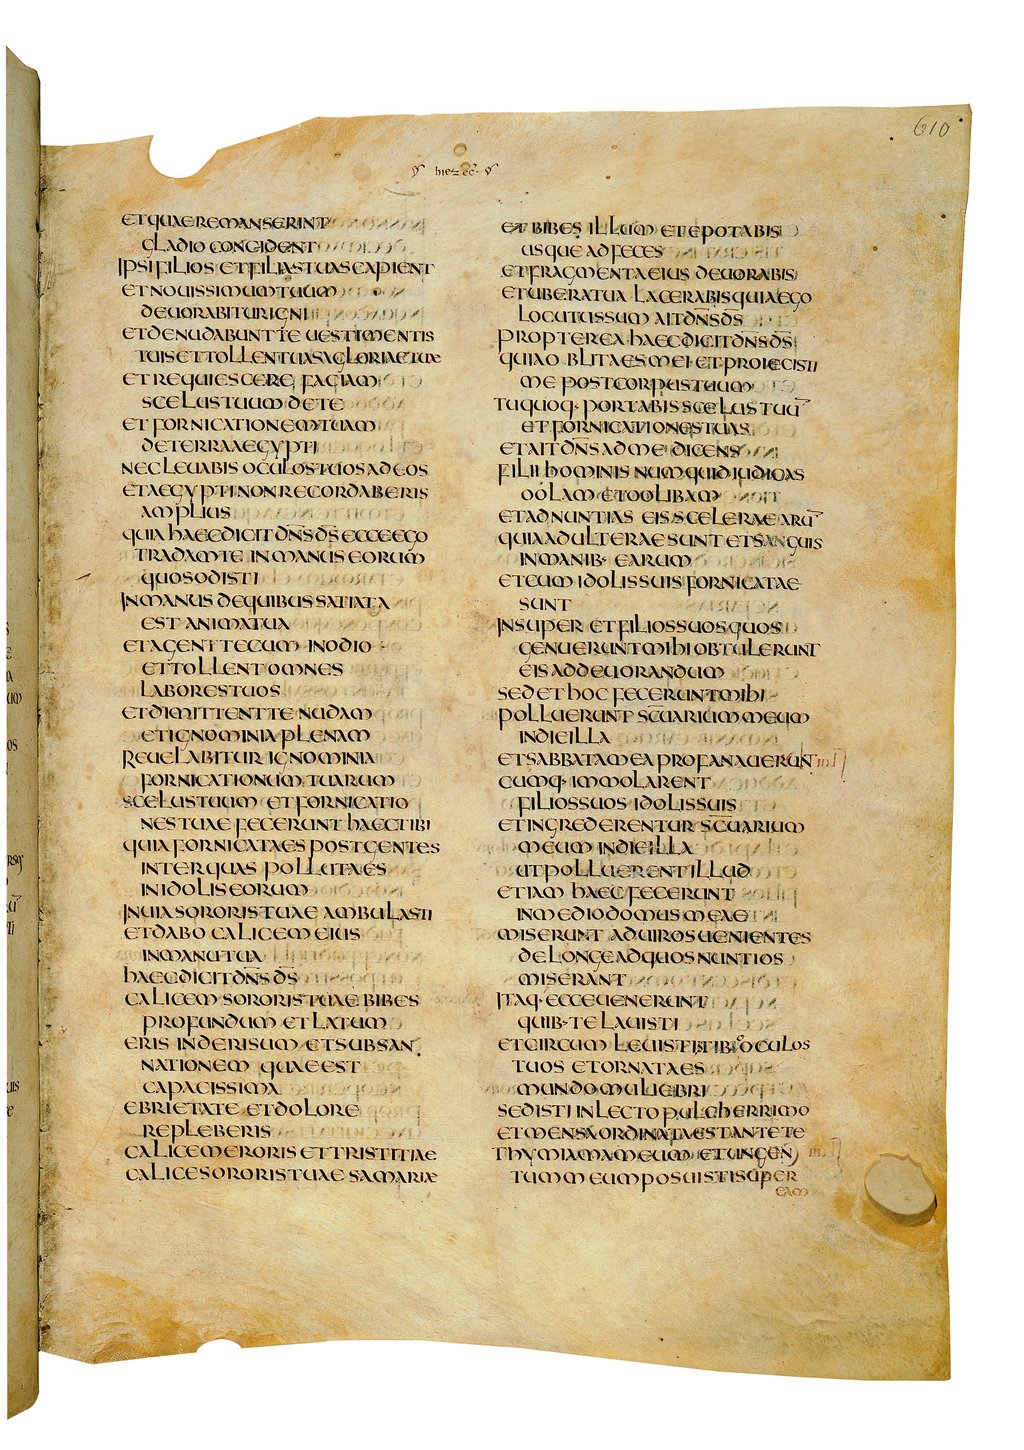 610
hiezec
ETQUAEREMANSERINT
GLADIO CONCIDENT
IPSI FILIOS ET FILIAS TUAS CAPIENT
ET NOUISSIMUM TUUM
DEUORABITUR IGNI
ET DENUDABUNT TE UESTIMENTIS
TUIS ET TOLLENT UASA GLORIAE TUAE
ET REQUIESCERE FACIAM
SCELUS TUUM DE TE
ET FORNICATIONEM TUAM
DE TERRA AEGYPTI
NEC LEUABIS OCULOS TUOS AD EOS
ET AEGYPTI NON RECORDABERIS
AMPLIUS
QUIA HAEC DICIT DN̅S DS̅ ECCE EGO
TRADAM TE IN MANUS EORUM
QUOS ODISTI
IN MANUS DE QUIBUS SATIATA
EST ANIMA TUA
ET AGENT TECUM IN ODIO
ET TOLLENT OMNES
LABORES TUOS
ET DIMITTENT TE NUDAM
ET IGNOMINIA PLENAM
REUELABITUR IGNOMINIA
FORNICATIONUM TUARUM
SCELUS TUUM ET FORNICATIO
NES TUAE FECERUNT HAEC TIBI
QUIA FORNICATA ES POST GENTES
INTER QUAS POLLUTA ES
IN IDOLIS EORUM
IN UIA SORORIS TUAE AMBULASTI
ET DABO CALICEM EIUS
IN MANU TUA
HAEC DICIT DN̅S DS̅
CALICEM SORORIS TUAE BIBES
PROFUNDUM ET LATUM
ERIS IN DERISUM ET SUBSAN
NATIONEM QUAE EST
CAPACISSIMA
EBRIETATE ET DOLORE
REPLEBERIS
CALICE MERORIS ET TRISTITIAE
CALICE SORORIS TUAE SAMARIAE
ET BIBES ILLUM ET EPOTABIS
USQUE AD FECES
ET FRAGMENTA EIUS DEUORABIS
ET UBERA TUA LACERABIS QUIA EGO
LOCUTUS SUM AIT DN̅S DS̅
PROPTEREA HAEC DICIT DN̅S DS̅
QUIA OBLITA ES MEI ET PROIECISTI
ME POST CORPUS TUUM
TU QUOQ· PORTA BIS SCELUS TUU̅
ET FORNICATIONES TUAS
ET AIT DN̅S AD ME DICENS
FILII HOMINIS NUMQUID IUDICAS
OOLAM ET OOLIBAM
ET ADNUNTIAS EIS SCELERA EARU̅
QUIA ADULTERAE SUNT ET SANGUIS
IN MANIB· EARUM
ET CUM IDOLIS SUIS FORNICATAE
SUNT
INSUPER ET FILIOS SUOS QUOS
GENUERUNT MIHI OBTULERUNT
EIS AD DEUORANDUM
SED ET HOC FECERUNT MIHI
POLLUERUNT SC̅UARIUM MEUM
IN DIE ILLA
ET SABBATA MEA PROFANAUERUNT
CUMQ· IMMOLARENT
FILIOS SUOS IDOLIS SUIS
ET INGREDERENTUR SC̅UARIUM
MEUM IN DIE ILLA
UT POLLUERENT ILLUD
ETIAM HAEC FECERUNT
IN MEDIO DOMUS MEAE
MISERUNT AD UIROS UENIENTES
DE LONGE AD QUOS NUNTIOS
MISERANT
ITAQ· ECCE UENERUNT
QUIB· TE LAUISTI
ET CIRCUMLEUISTI STIBIO OCULOS
TUOS ET ORNATA ES
MUNDO MULIEBRI
SEDISTI IN LECTO PULCHERRIMO
ET MENSA ORDINATA EST ANTE TE
THYMIAMA MEUM ET UNGEN
TUM MEUM POSUISTI SUPER
EAM